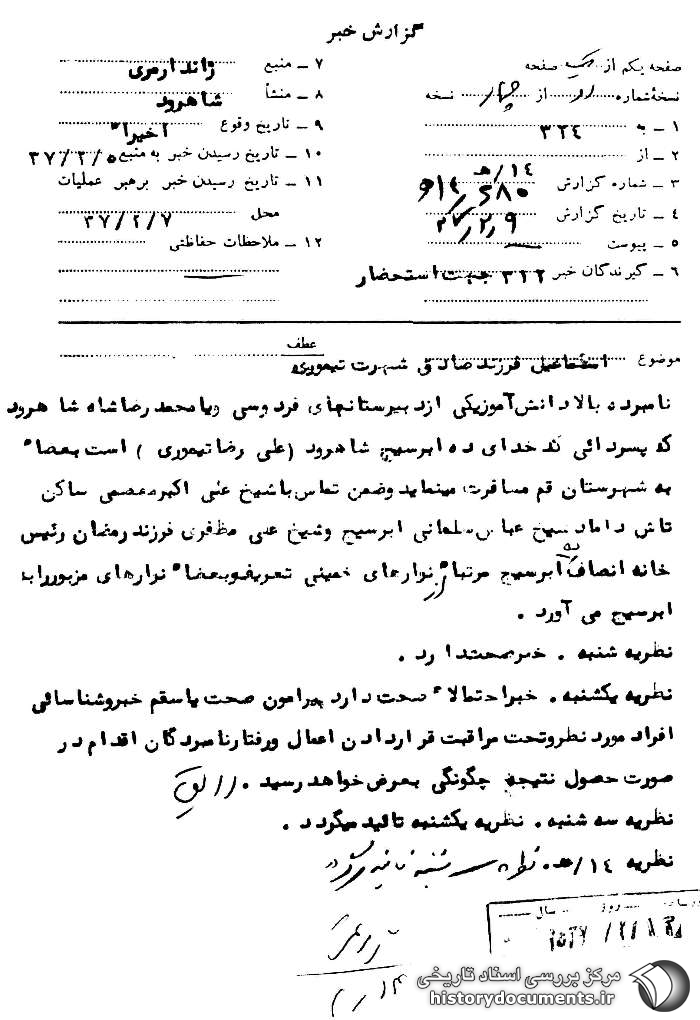 گزارش خبر
صفحه یکم از یک صفحه
نسخهٔ شماره از چهار نسخه
۱ ــ به ۳۲۴
۲ ــ از
۳ ــ شماره گزارش ۱۴/هـ
۴ ــ تاریخ گزارش ۳۷/۲/۹
۵ ــ پیوست
۶ ــ گیرندگان خبر ۳۲۲ جهت استحضار
۷ ــ منبع ژاندارمری
۸ ــ منشأ شاهرود
۹ ــ تاریخ وقوع اخیراً
۱۰ ــ تاریخ رسیدن خبر به منبع ۳۷/۲/۵
۱۱ ــ تاریخ رسیدن خبر برهبر عملیات
محل ۳۷/۲/۷
۱۲ ــ ملاحظات حفاظتی
عطف
موضوع اسمعیل فرزند صادق شهرت تیموری
نامبرده بالا دانش آموزیکی از دبیرستانهای فردوسی ویا محمد رضا شاه شاهرود
که پسردائی کدخدای ده ابرسیج شاهرود (علی رضا تیموری) است بعضاً
به شهرستان قم مسافرت مینماید وضمن تماس باشیخ علی اکبر معصمی ساکن
تاش داماد شیخ عباس سلمانی ابرسیج وشیخ علی مظفری فرزند رمضان رئیس
خانه انصاف ابرسیج مرتباً به از نوارهای خمینی تعریف وبعضاً نوارهای مزبوررابه
ابرسیج می آورد .
نظریه شنبه . خبر صحت دارد .
نظریه یکشنبه . خبر احتمالاً صحت دارد پیرامون صحت یا سقم خبروشناسائی
افراد مورد نظروتحت مراقبت قراردادن اعمال ورفتارنامبردگان اقدام در
صورت حصول نتیجه چگونگی بعرض خواهد رسید .
نظریه سه شنبه . نظریه یکشنبه تائید میگردد .
نظریه ۱۴/هـ . نظریه سه شنبه تائید میگردد
روز سال
۱۴
مرکز بررسی اسناد تاریخی
historydocuments.ir